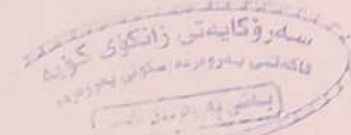 سەرۆکایەتی زانکۆی کۆیە
فاکەڵتی پەروەردە/سکوڵی پەروەردە
بەشی